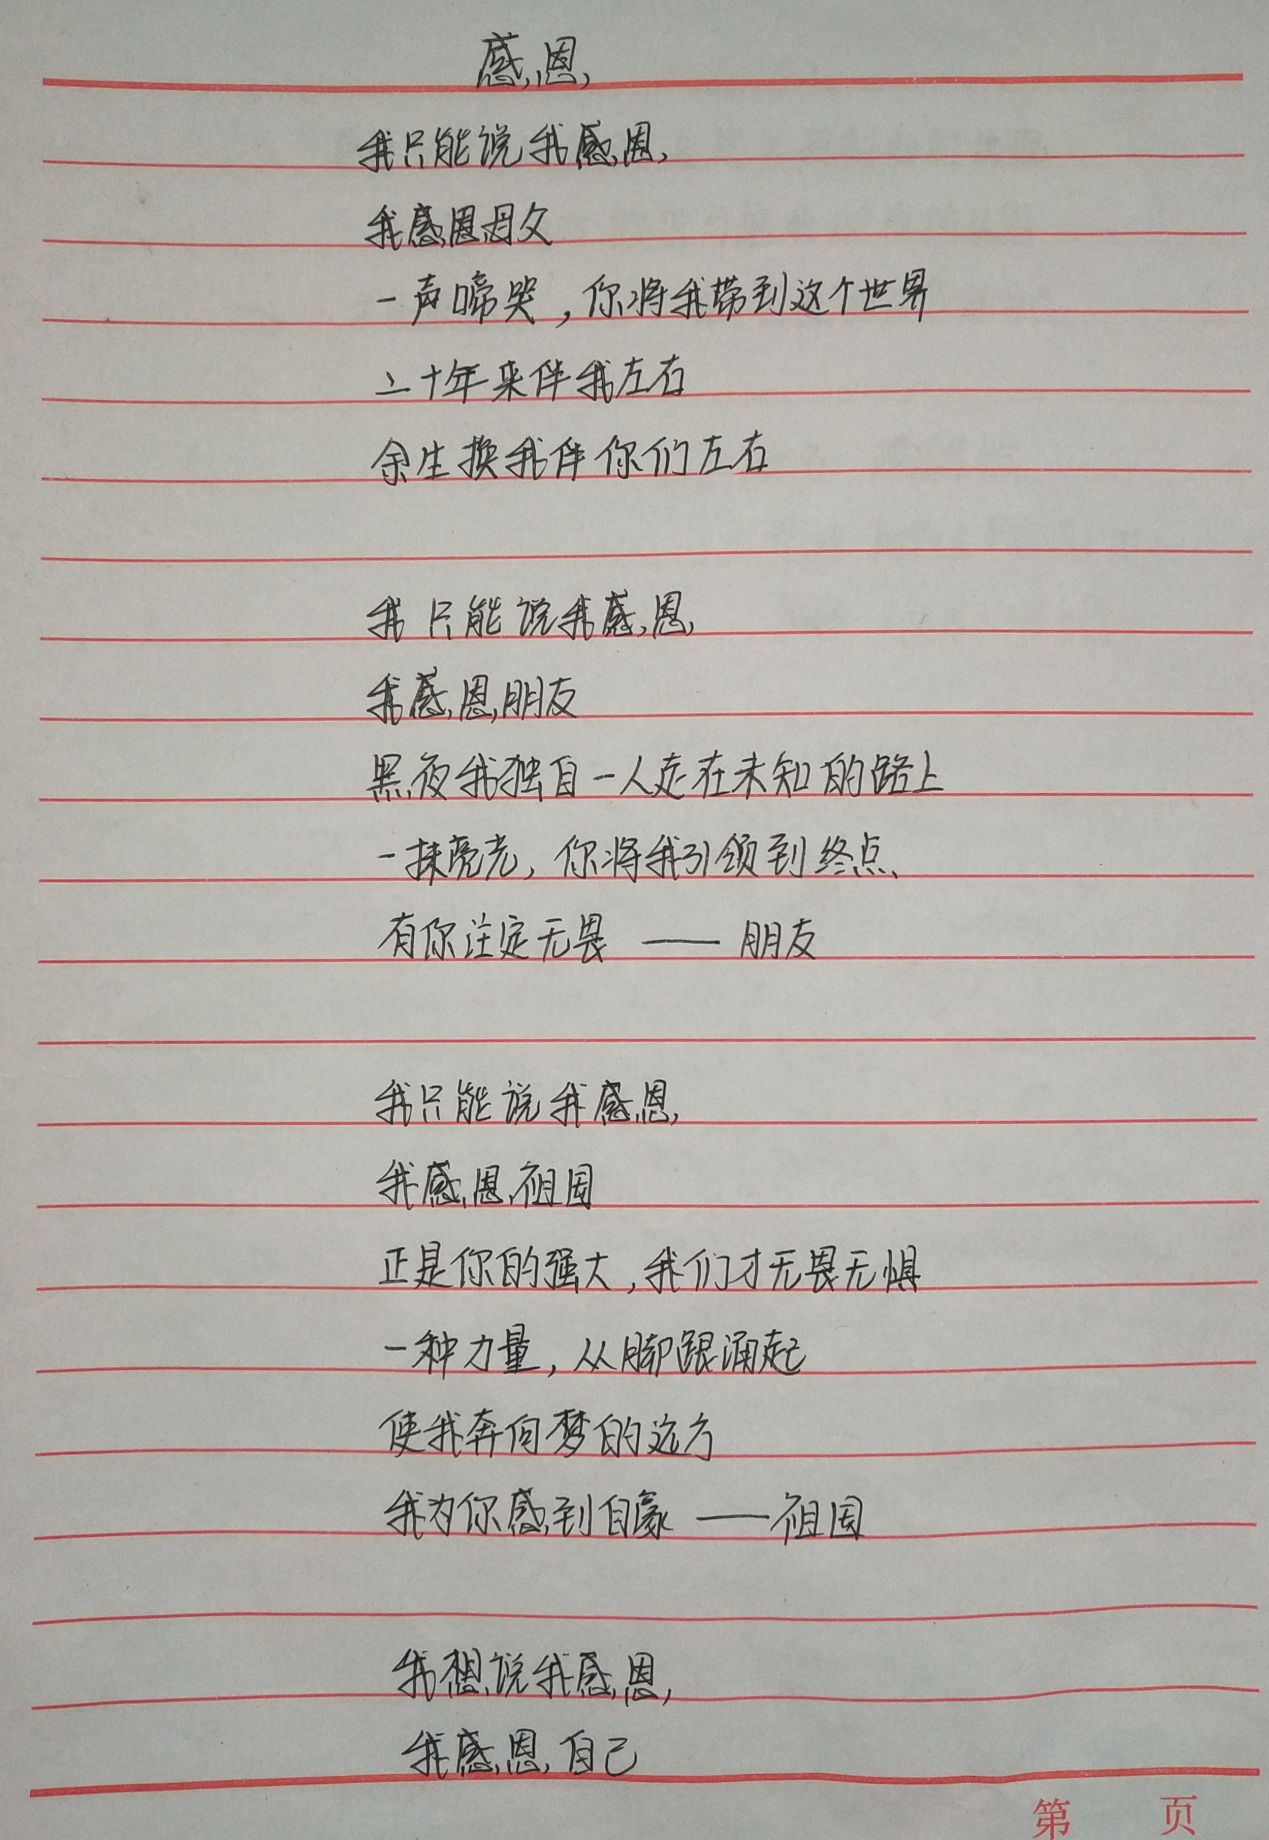 感恩
我只能说我感恩
我感恩母父
一声啼哭，你将我带到这个世界
二十年来伴我左右
余生换我伴你们左右
我只能说我感恩
我感恩朋友
黑夜我独自一人走在未知的路上
一抹亮光，你将我引领到终点
有你注定无畏 —— 朋友
我只能说我感恩
我感恩祖国
正是你的强大，我们才无畏无惧
一种力量，从脚跟涌起
使我奔向梦的远方
我为你感到自豪 ——祖国
我想说我感恩
我感恩自己
第 页